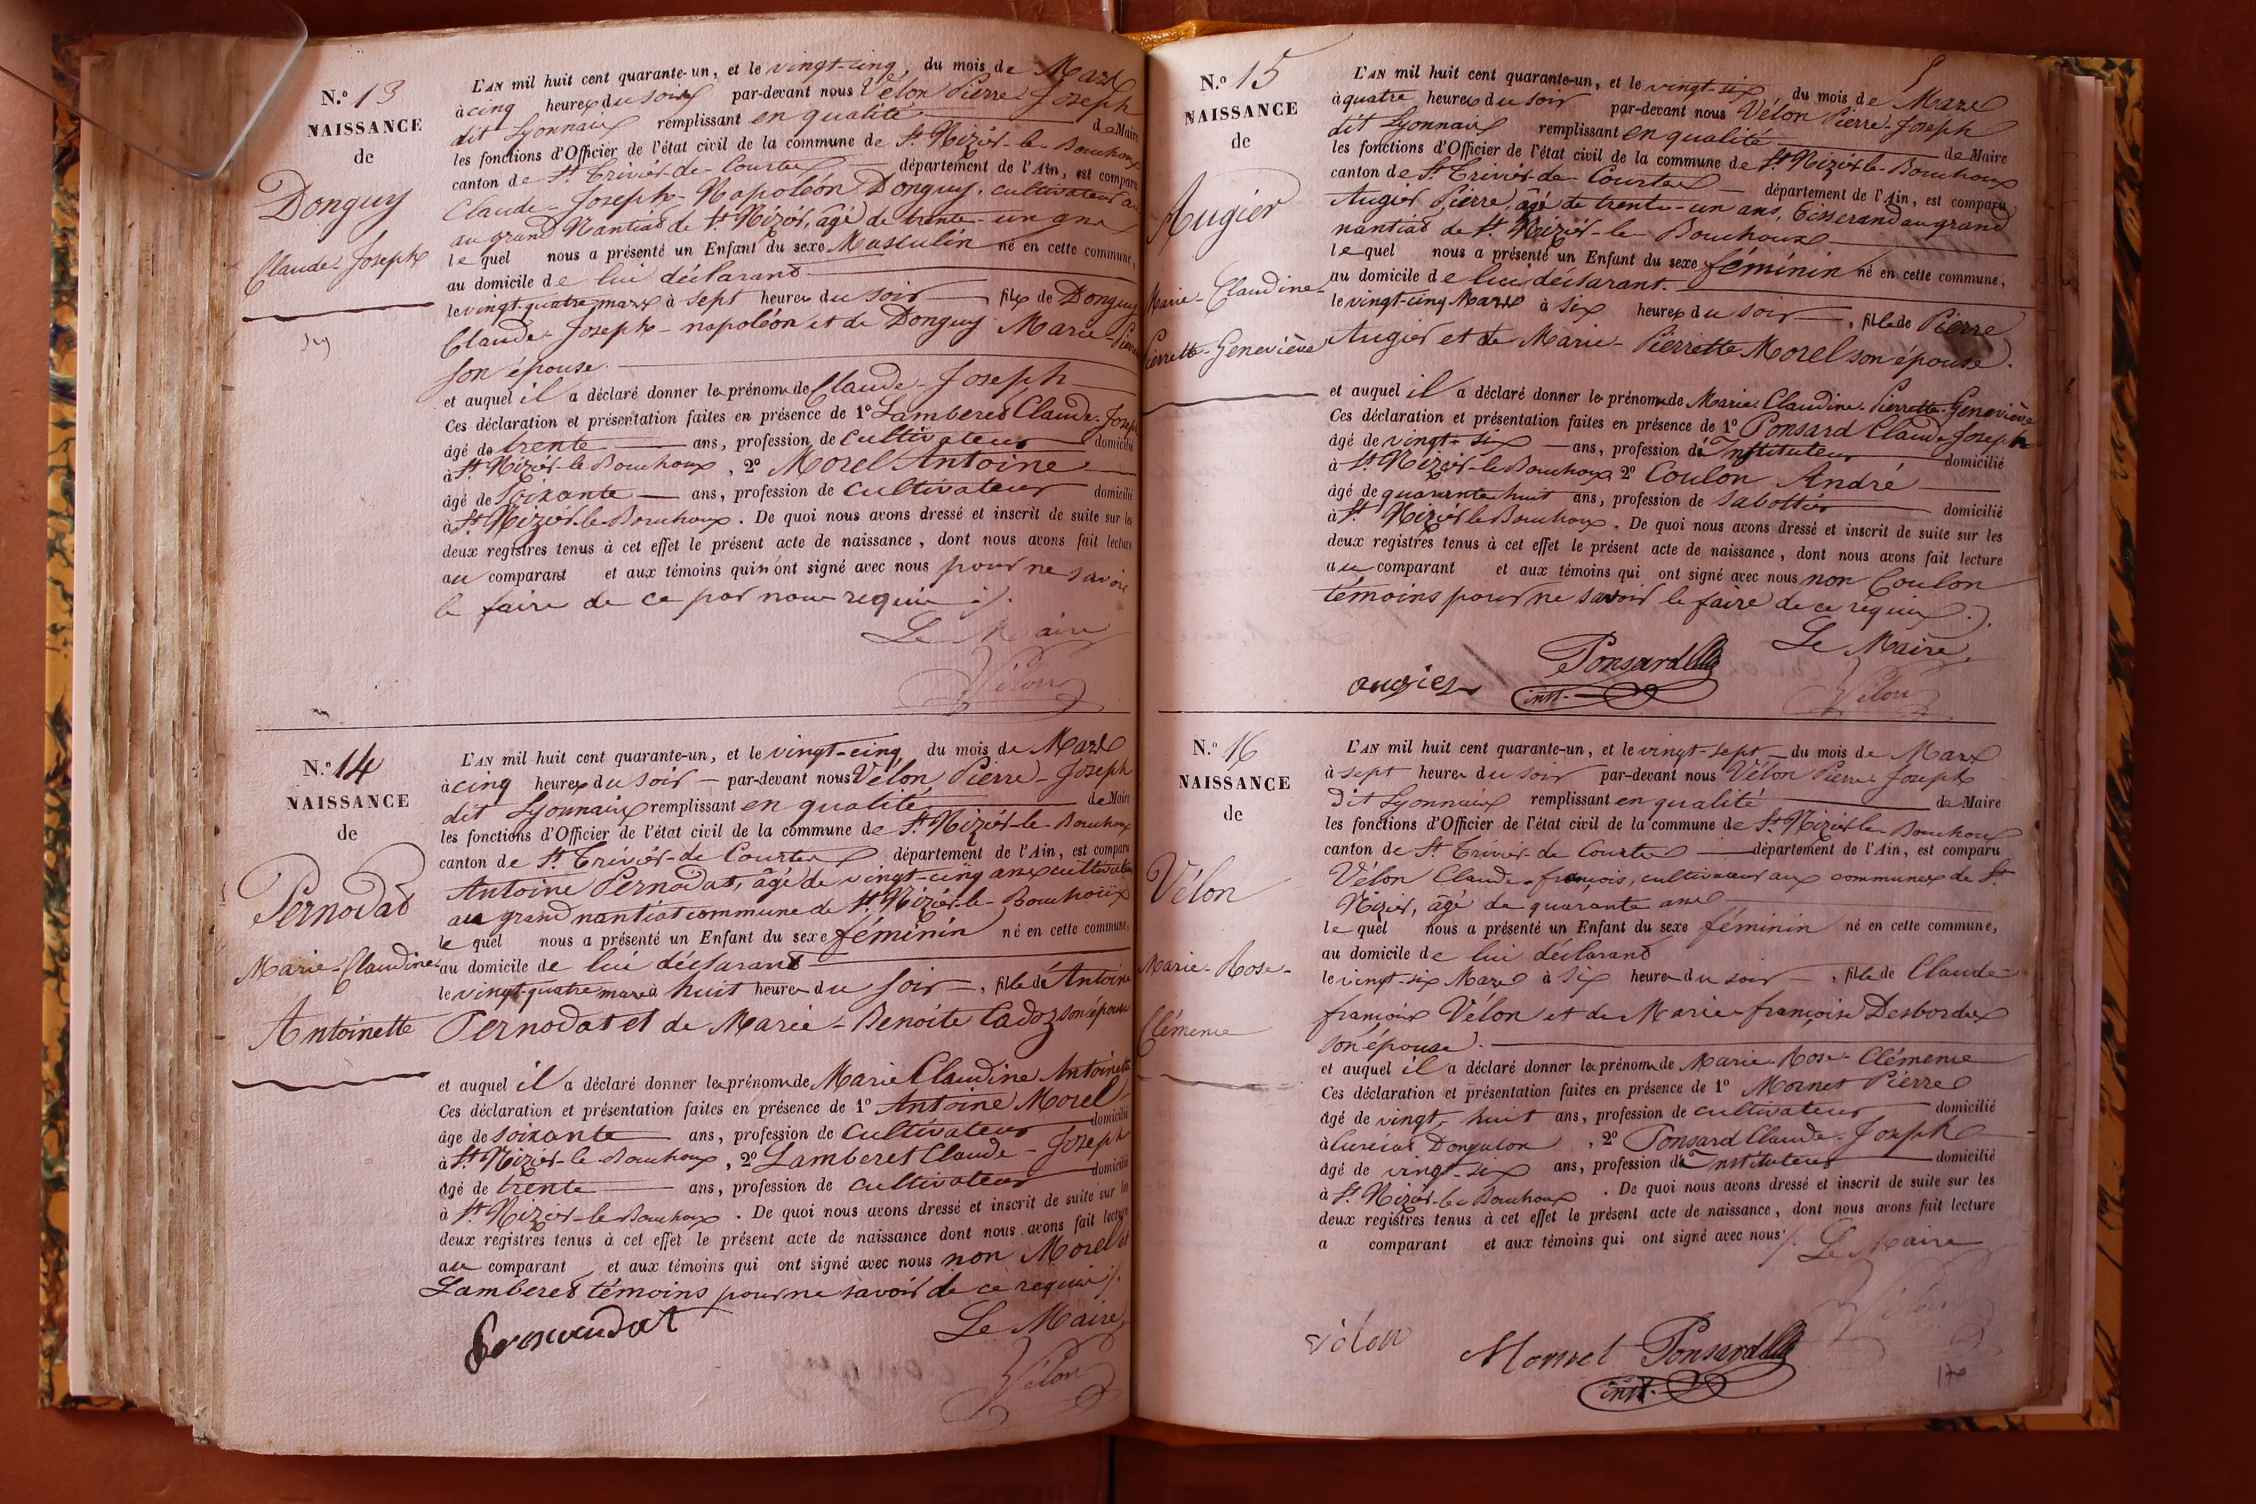 N.º 13
NAISSANCE
de
Donguy
Claude-Joseph
L'AN mil huit cent quarante-un, et le vingt-cinq du mois de Mars
à cinq heures du soir par-devant nous Vélon Pierre-Joseph
dit Lyonnais remplissant en qualité de Maire
les fonctions d'Officier de l'état civil de la commune de St Nizier-le-Bouchoux
canton de St Trivier-de-Courtes département de l'Ain, est comparu
Claude-Joseph-Napoléon Donguy, cultivateur
au grand Nantias de St Nizier, âgé de trente-un ans
le quel nous a présenté un Enfant du sexe Masculin né en cette commune,
au domicile de lui déclarant
le vingt-quatre mars à sept heures du soir fils de Donguy
Claude-Joseph-napoléon et de Donguy Marie-
son épouse.
et auquel il a déclaré donner les prénoms de Claude-Joseph
Ces déclaration et présentation faites en présence de 1º Lamberet Claude-Joseph
âgé de trente ans, profession de Cultivateur domicilié
à St Nizier-le-Bouchoux, 2º Morel Antoine
âgé de soixante ans, profession de cultivateur domicilié
à St Nizier-le-Bouchoux. De quoi nous avons dressé et inscrit de suite sur les
deux registres tenus à cet effet le présent acte de naissance, dont nous avons fait lecture
au comparant et aux témoins qui n'ont signé avec nous pour ne savoir
le faire de ce par nous requis ./.
Le Maire
Vélon
N.º 14
NAISSANCE
de
Pernodat
Marie-Claudine-
Antoinette
L'AN mil huit cent quarante-un, et le vingt-cinq du mois de Mars
à cinq heures du soir par-devant nous Vélon Pierre-Joseph
dit Lyonnais remplissant en qualité de Maire
les fonctions d'Officier de l'état civil de la commune de St Nizier-le-Bouchoux
canton de St Trivier-de-Courtes département de l'Ain, est comparu
Antoine Pernodat, âgé de vingt-cinq ans cultivateur
au grand nantiat commune de St Nizier-le-Bouchoux
le quel nous a présenté un Enfant du sexe féminin né en cette commune,
au domicile de lui déclarant
le vingt-quatre mars à huit heures du soir, fille de Antoine
Pernodat et de Marie-Benoite Cadoz son épouse
et auquel il a déclaré donner les prénoms de Marie Claudine Antoinette
Ces déclaration et présentation faites en présence de 1º Antoine Morel
âgé de soixante ans, profession de Cultivateur domicilié
à St Nizier-le-Bouchoux, 2º Lamberet Claude-Joseph
âgé de trente ans, profession de cultivateur domicilié
à St Nizier-le-Bouchoux. De quoi nous avons dressé et inscrit de suite sur les
deux registres tenus à cet effet le présent acte de naissance dont nous avons fait lecture
au comparant et aux témoins qui ont signé avec nous non Morel et
Lamberet témoins pour ne savoir de ce requis ./.
Le Maire
Vélon
N.º 15
NAISSANCE
de
Augier
Marie-Claudine-
Pierrette-Geneviève
L'AN mil huit cent quarante-un, et le vingt-six du mois de Mars
à quatre heures du soir par-devant nous Vélon Pierre-Joseph
dit Lyonnais remplissant en qualité de Maire
les fonctions d'Officier de l'état civil de la commune de St Nizier-le-Bouchoux
canton de St Trivier-de-Courtes département de l'Ain, est comparu
Augier Pierre, âgé de trente-un ans, tisserand au grand
nantias de St Nizier-le-Bouchoux
le quel nous a présenté un Enfant du sexe féminin né en cette commune,
au domicile de lui déclarant.
le vingt-cinq Mars à six heures du soir, fille de Pierre
Augier et de Marie-Pierrette Morel son épouse.
et auquel il a déclaré donner les prénoms de Marie-Claudine-Pierrette-Geneviève
Ces déclaration et présentation faites en présence de 1º Ponsard Claude Joseph
âgé de vingt-six ans, profession d'Instituteur domicilié
à St Nizier-le-Bouchoux 2º Coulon André
âgé de quarante huit ans, profession de Sabottier domicilié
à St Nizier-le-Bouchoux. De quoi nous avons dressé et inscrit de suite sur les
deux registres tenus à cet effet le présent acte de naissance, dont nous avons fait lecture
au comparant et aux témoins qui ont signé avec nous non Coulon
témoins pour ne savoir le faire de ce requis ./.
Le Maire
augier
Ponsard
inst.
Vélon
N.º 16
NAISSANCE
de
Vélon
Marie-Rose-
Clémence
L'AN mil huit cent quarante-un, et le vingt-sept du mois de Mars
à sept heures du soir par-devant nous Vélon Pierre Joseph
Dit Lyonnais remplissant en qualité de Maire
les fonctions d'Officier de l'état civil de la commune de St Nizier-le-Bouchoux
canton de St Trivier-de-Courtes département de l'Ain, est comparu
Vélon Claude-françois, cultivateur aux communes de St
Nizier, âgé de quarante ans
le quel nous a présenté un Enfant du sexe féminin né en cette commune,
au domicile de lui déclarant
le vingt-six Mars à six heures du soir, fille de Claude
françois Vélon et de Marie-françoise Desbordes
son épouse.
et auquel il a déclaré donner les prénoms de Marie-Rose-Clémence
Ces déclaration et présentation faites en présence de 1º Mornet Pierre
âgé de vingt-huit ans, profession de cultivateur domicilié
à , 2º Ponsard Claude-Joseph
âgé de vingt-six ans, profession d'Instituteur domicilié
à St Nizier-le-Bouchoux. De quoi nous avons dressé et inscrit de suite sur les
deux registres tenus à cet effet le présent acte de naissance, dont nous avons fait lecture
a comparant et aux témoins qui ont signé avec nous ./. Le Maire
Vélon
vélon
Mornet Ponsard
inst.